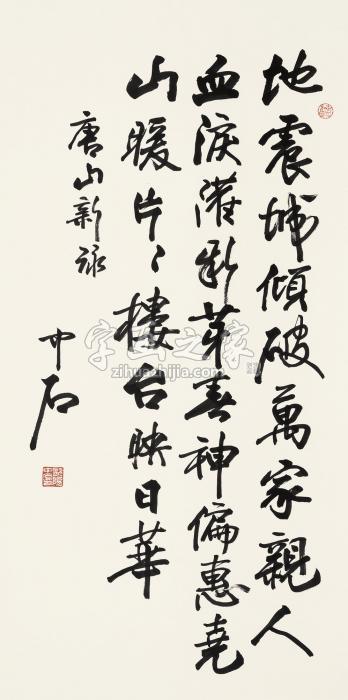 地震城傾破萬家親人
血淚灌新芽春神偏惠堯
山暖片〻樓台映日華
唐山新詠
中石
字画之家
zihuazhijia.com